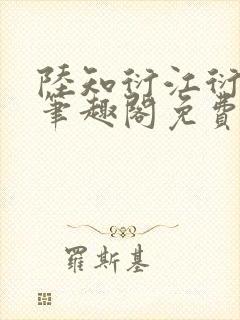 陸知衍江衍
筆趣閣免費
羅斯基